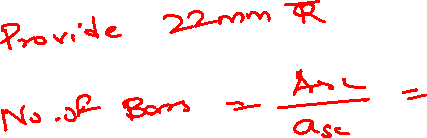 Provide 22mm Φ
No. of Bars = Asc / asc =